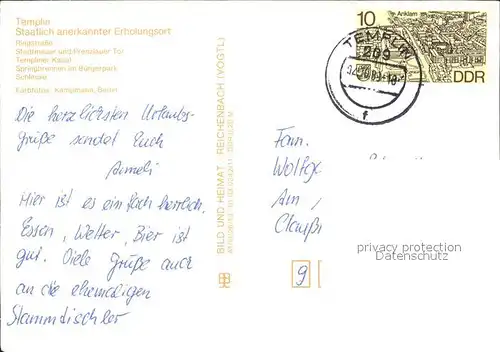 Templin
Staatlich anerkannter Erholungsort
Ringstraße
Stadtmauer und Prenzlauer Tor
Templiner Kanal
Springbrunnen im Bürgerpark
Schleuse
Farbfotos: Kampmann, Berlin
Die herzlichsten Urlaubs-
grüße sendet Euch
Anneli
Hier ist es einfach herrlich.
Essen, Wetter, Bier ist
gut. Viele Grüße auch
an die ehemaligen
Stammtischler
BILD UND HEIMAT REICHENBACH (VOGTL)
10
Anklam
DDR
TEMPLIN
209
f
Fam.
Wolfga
Am
Claußn
9
privacy protection
Datenschutz